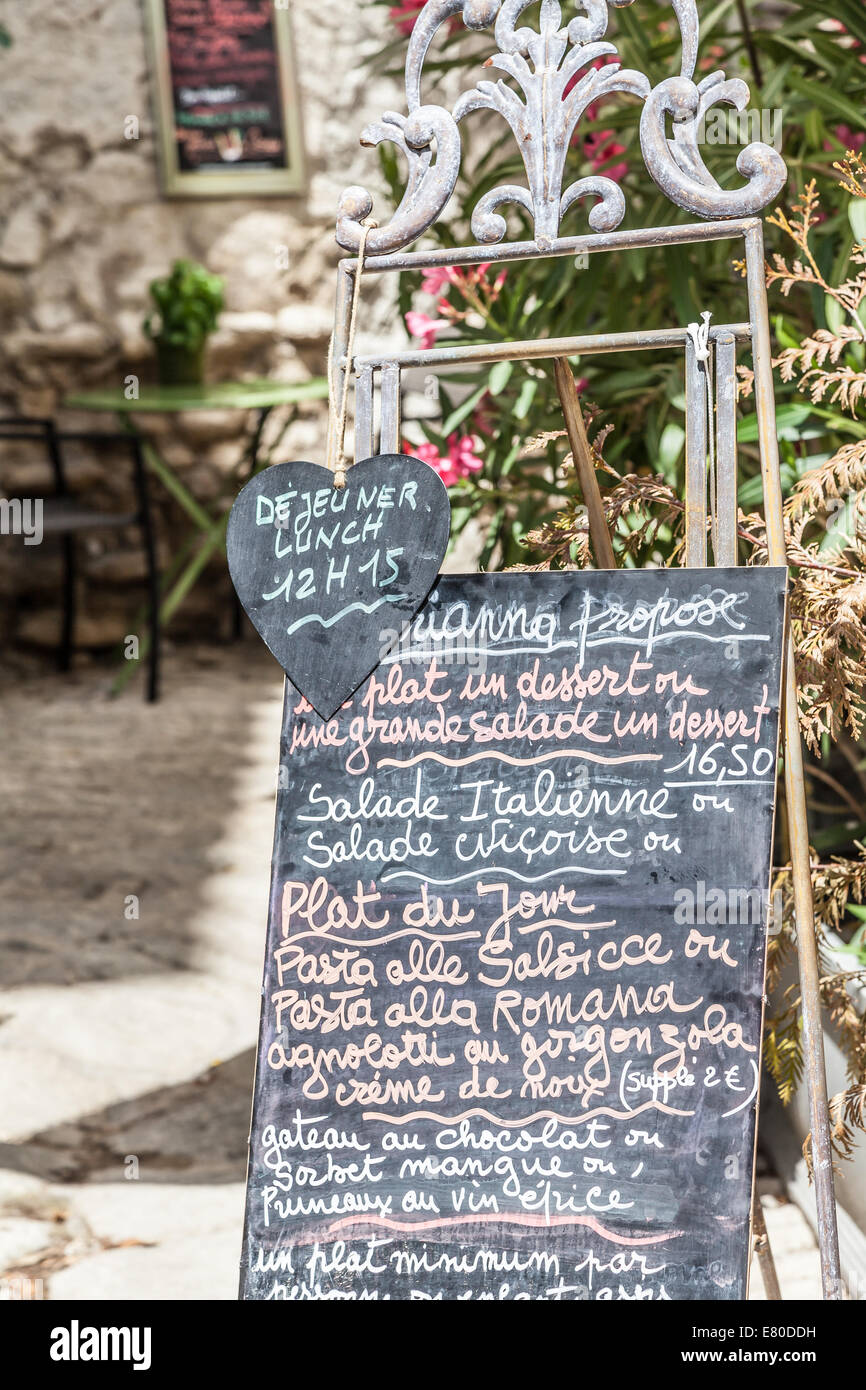 DÉJEUNER
LUNCH
12H15
propose
plat un dessert ou
une grande salade un dessert
16,50
Salade Italienne ou
Salade Niçoise ou
Plat du Jour
Pasta alle Salsicce ou
Pasta alla Romana
agnolotti au gorgonzola
crème de noix (supplé 2€)
gateau au chocolat ou
Sorbet mangue ou,
Pruneaux au vin épice
un plat minimum par
personne ou enfant assis
alamy stock photo
E80DDH
www.alamy.com